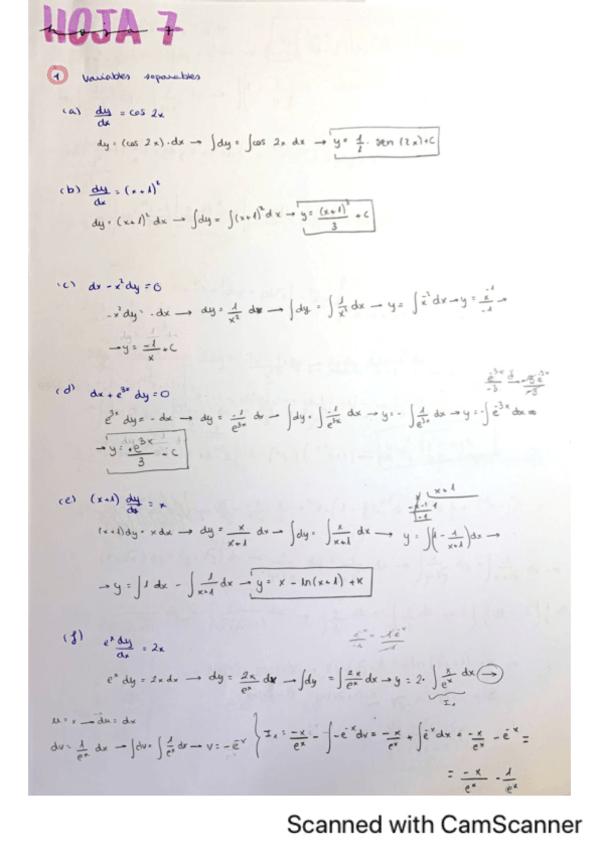 HOJA 7
hoja 7
1 Variables separables
(a) dy/dx = cos 2x
dy = (cos 2x)·dx → ∫dy = ∫cos 2x dx → y = 1/2 · sen (2x) + C
(b) dy/dx = (x+1)²
dy = (x+1)² dx → ∫dy = ∫(x+1)² dx → y = (x+1)³/3 + C
(c) dx - x²dy = 0
-x²dy = -dx → dy = 1/x² dx → ∫dy = ∫1/x² dx → y = ∫x⁻² dx → y = x⁻¹/-1 →
→ y = -1/x + C
(d) dx + e³ˣ dy = 0
e³ˣ dy = - dx → dy = -1/e³ˣ dx → ∫dy = ∫-1/e³ˣ dx → y = -∫1/e³ˣ dx → y = -∫e⁻³ˣ dx =
(e) (x+1) dy/dx = x
x+1
(x+1)dy = x dx → dy = x/x+1 dx → ∫dy = ∫x/x+1 dx → y = ∫(1 - 1/x+1)dx →
→ y = ∫1 dx - ∫1/x+1 dx → y = x - ln(x+1) + K
(f) eˣ dy/dx = 2x
eˣ dy = 2x dx → dy = 2x/eˣ dx → ∫dy = ∫2x/eˣ dx → y = 2·∫x/eˣ dx →
I₁
u = x → du = dx
dv = 1/eˣ dx → ∫dv = ∫1/eˣ dx → v = -e⁻ˣ } I₁ = -x/eˣ - ∫-e⁻ˣ dx = -x/eˣ + ∫e⁻ˣ dx = -x/eˣ - e⁻ˣ =
= -x/eˣ - 1/eˣ
Scanned with CamScanner